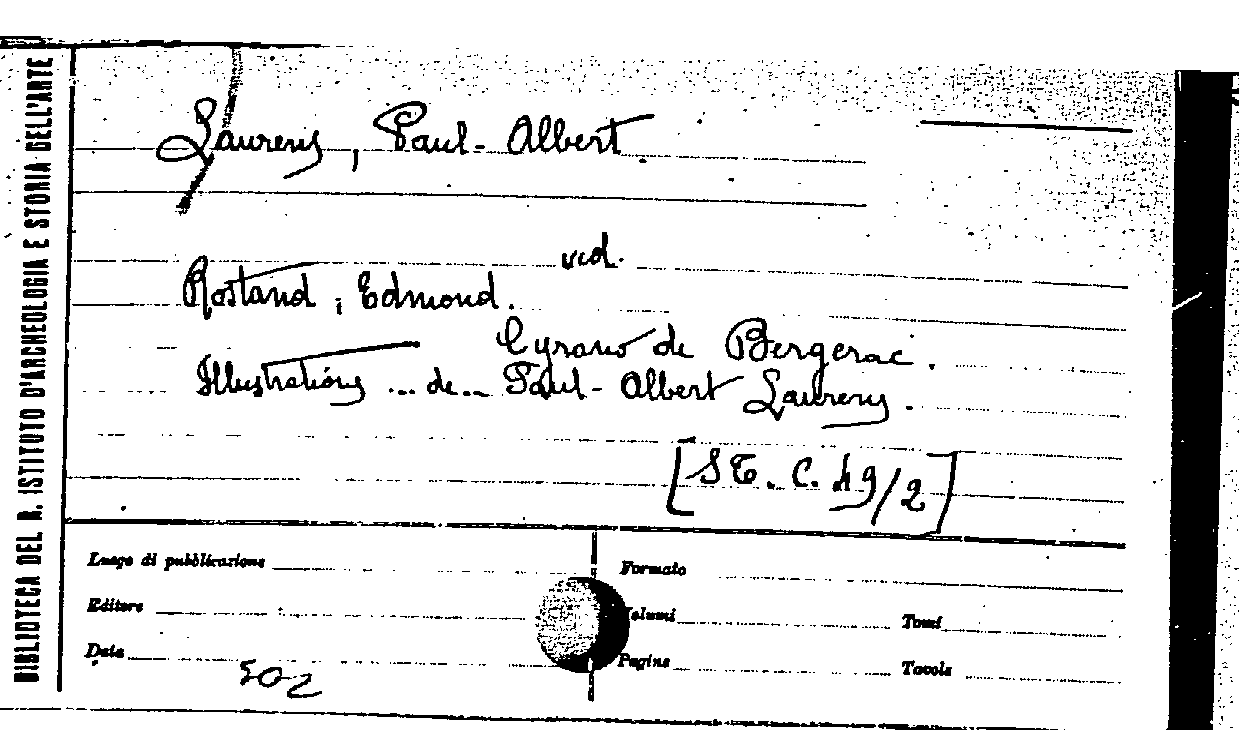 BIBLIOTECA DEL R. ISTITUTO D'ARCHEOLOGIA E STORIA DELL'ARTE
Laurens, Paul-Albert.
ved.
Rostand, Edmond.
Cyrano de Bergerac.
Illustrations ... de... Paul-Albert Laurens.
[ST. C. 49/2]
Luogo di pubblicazione
Formato
Editore
Volumi
Tomi
Data
Pagine
Tavole
502